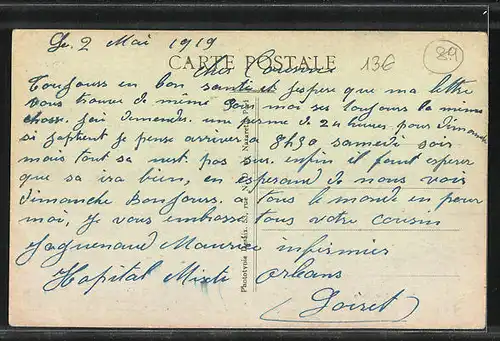 Le 2 Mai 1919
CARTE POSTALE
13€
89
Cher Cousine
Toujours en bon santé et j'espere que ma lettre
vous trouve de même Pour moi ses toujours la même
chose. j'ai demende. un perme de 24 heures pour dimanche
si je pense arriver a 8h30 samedi soir
mais tout sa net pas sur. enfin il faut esperer
que sa ira bien, en esperand de nous voir
dimanche Bonjours. a tous le monde en pour
moi, Je vous embrasse tous votre cousin
Jaguenaud Maurice infirmier
Hopital Mixte Orleans
(Loiret)
Phototypie rue Nazareth, Paris